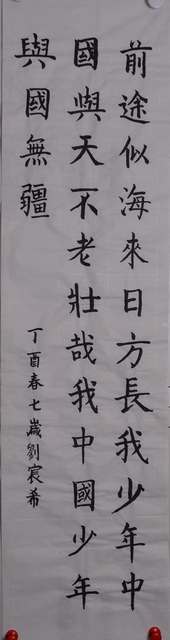 前途似海來日方長我少年中
國與天不老壯哉我中國少年
與國無疆
丁酉春七歲劉宸希